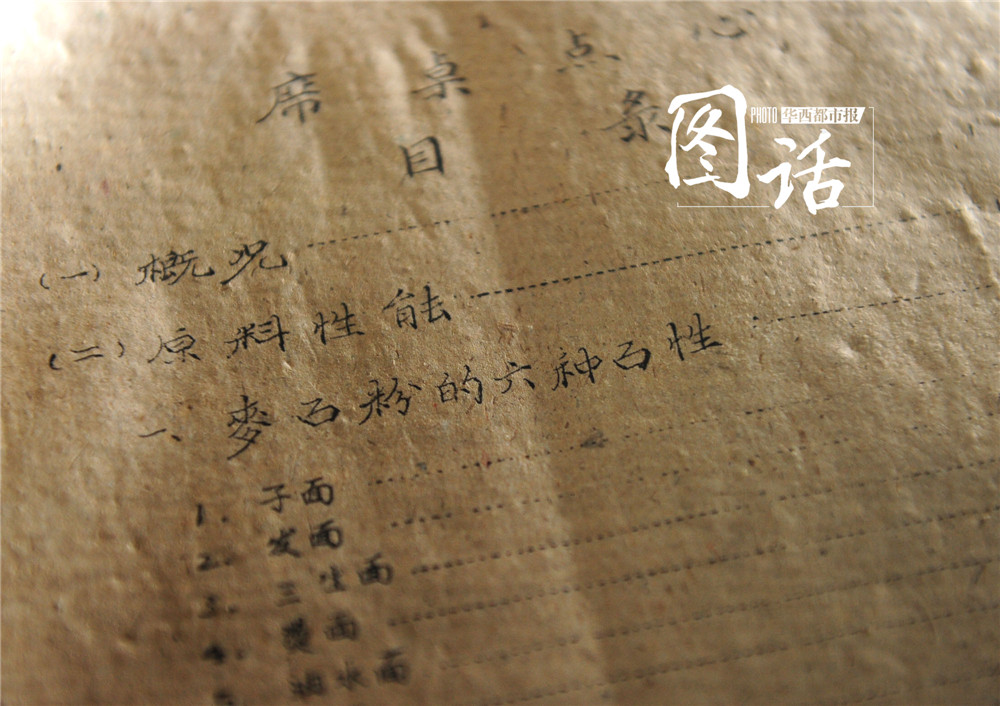 席桌点心
目录
(一)概况
(二)原料性能
一、麥面粉的六种面性
1. 子面
2. 发面
3. 三生面
4. 烫面
5. 油水面
图话
PHOTO 华西都市报